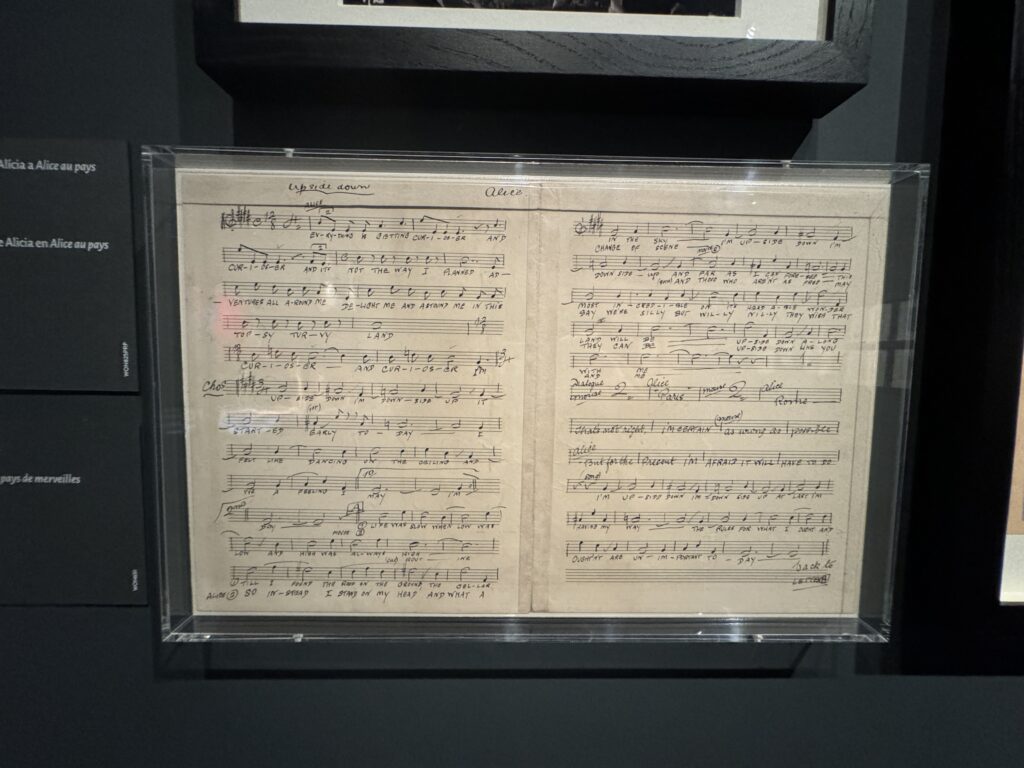 Alícia a Alice au pays
e Alicia en Alice au pays
WOH829PRP
pays de merveilles
WOHER
upside down
Alice
ALICE
EV-RY-THING IS GETTING CUR-I-OS-ER AND
CUR-I-OS-ER AND ITS NOT THE WAY I PLANNED AD-
VENTURES ALL A-ROUND ME DE-LIGHT ME AND ASTOUND ME IN THIS
TOP-SY TUR-VY LAND
CUR-I-OS-ER AND CUR-I-OS-ER I'M
Chos
UP-SIDE DOWN I'M DOWN-SIDE UP IT
START-ED EARLY TO-DAY I
FELT LIKE DANCING ON THE CEILING AND
I'VE A FEELING I MAY I'M
DAY LIFE WAS SLOW WHEN LOW WAS
MOUSE
LOW AND HIGH WAS ALL-WAYS HIGH
TILL I FOUND THE ROOF ON THE GROUND THE CEL-LAR
ALICE 2 SO IN-STEAD I STAND ON MY HEAD AND WHAT A
IN THE SKY I'M UP-SIDE DOWN I'M
CHANGE OF SCENE
DOWN SIDE-UP AND FAR AS I CAN FORE-SEE THIS
AND THOSE WHO AREN'T AS FREE MAY
MOST IN-CRED-I-BLE ON ITS HEAD-A-BLE WON-DER
SAY WE'RE SILLY BUT WIL-LY NIL-LY THEY WISH THAT
LAND WILL BE UP-SIDE DOWN A-LONG
THEY CAN BE UP-SIDE DOWN LIKE YOU
WITH ME
AND ME
Dialogue
mouse Alice mouse Alice
Paris Rome
(mouse)
that's not right, I'M CERTAIN as wrong as possible
Alice
But for the Present I'M AFRAID IT WILL HAVE TO DO
I'M UP-SIDE DOWN I'M DOWN SIDE UP AT LAST I'M
LOVING MY WAY THE RULES FOR WHAT I OUGHT AND
OUGHT'NT ARE UN-IM-PORTANT TO-DAY
back to
LETTER